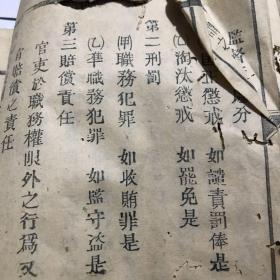 監督
處分
懲戒 如譴責罰俸是
(乙)淘汰懲戒 如罷免是
第二刑罰
(甲)職務犯罪 如收賄罪是
(乙)準職務犯罪 如監守盜是
第三賠償責任
官吏於職務權限外之行爲又
官賠償之責任